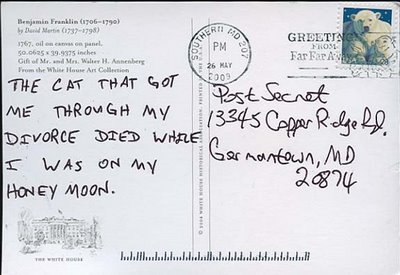 Benjamin Franklin (1706–1790)
by David Martin (1737–1798)
1767, oil on canvas on panel,
50.0625 x 39.9375 inches
Gift of Mr. and Mrs. Walter H. Annenberg
From the White House Art Collection
THE CAT THAT GOT
ME THROUGH MY
DIVORCE DIED WHILE
I WAS ON MY
HONEY MOON.
THE WHITE HOUSE
© 2004 WHITE HOUSE HISTORICAL ASSOCIATION, PRINTED
SOUTHERN MD 207
PM
26 MAY
2009
GREETINGS
FROM
Far Far Away
Post Secret
13345 Copper Ridge Rd.
Germantown, MD
20874